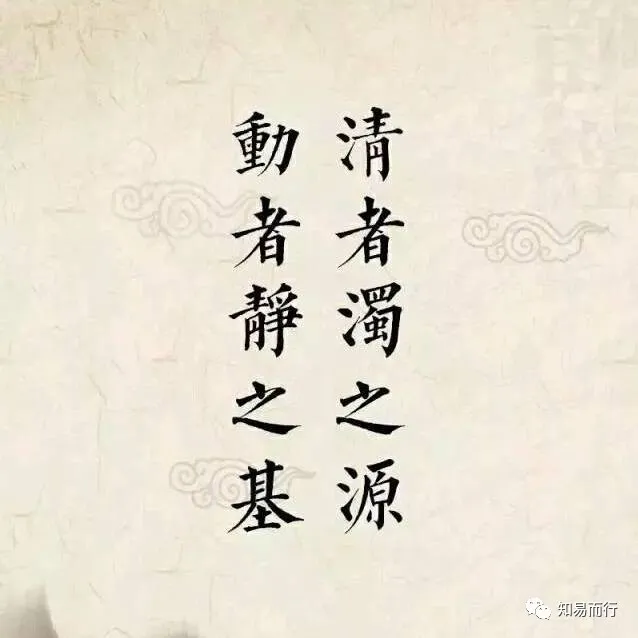 清者濁之源
動者靜之基
知易而行